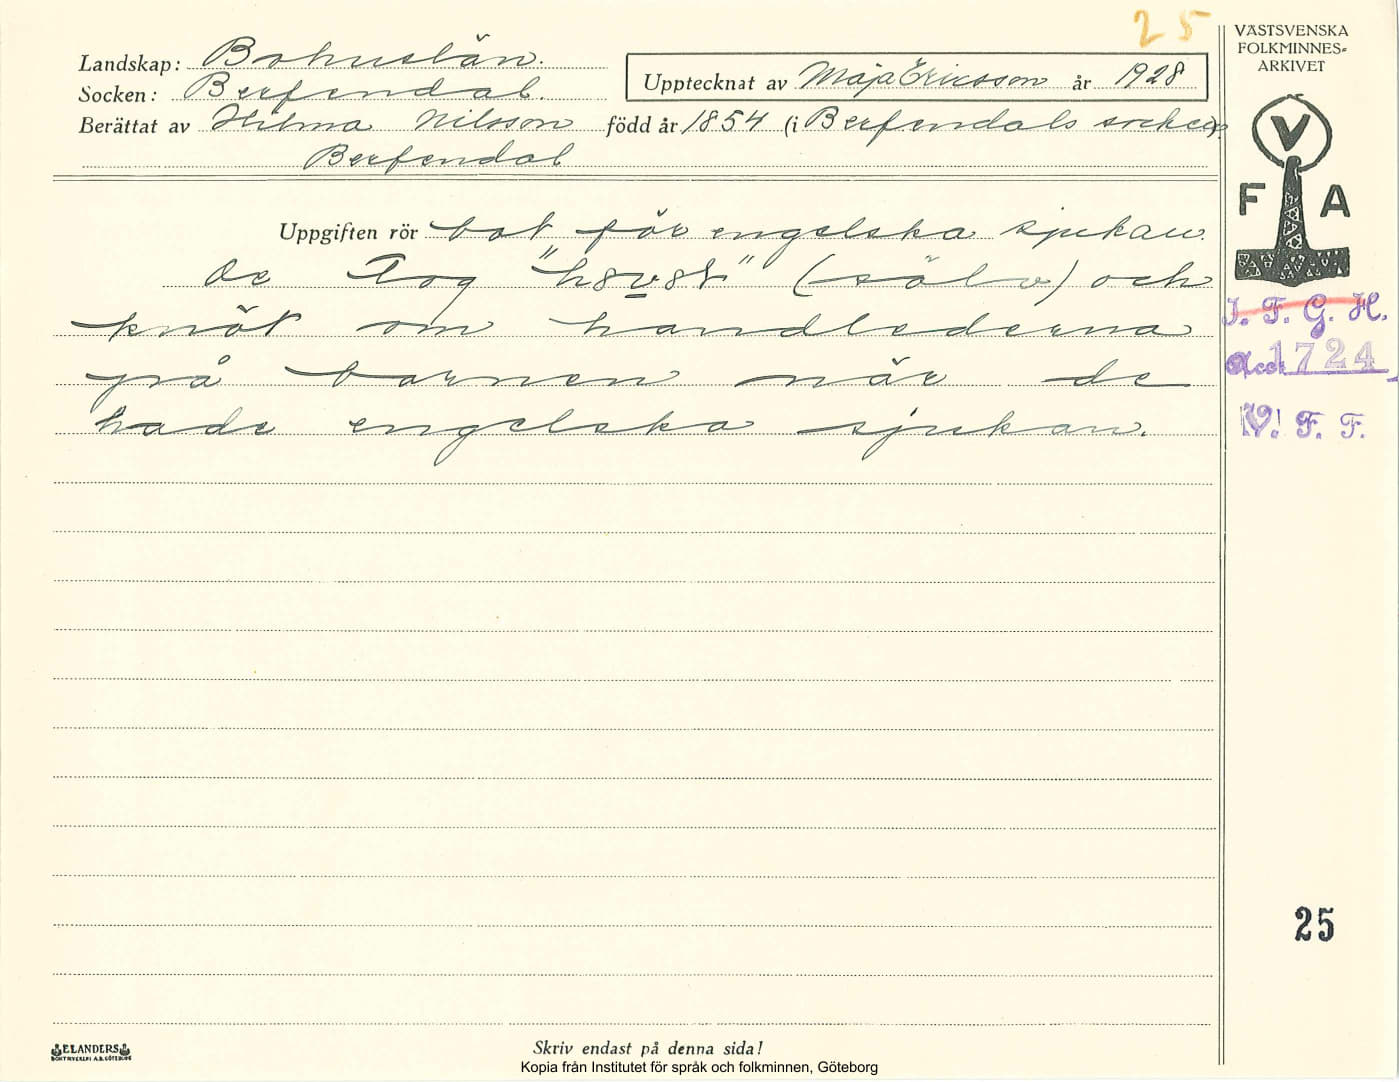 25
VÄSTSVENSKA
FOLKMINNES-
ARKIVET
Landskap: Bohuslän.
Socken: Berfendal.
Upptecknat av Maja Ericsson år 1928
Berättat av Hilma Nilsson född år 1854 (i Berfendals socken).
Berfendal
V
F A
Uppgiften rör bot för engelska sjukan.
De tog (sälv) och
knöt om handlederna
på barnen när de
hade engelska sjukan.
I. F. G. H.
Acc. 1724
V. F. F.
25
ELANDERS
BOKTRYCKERI A.B. GÖTEBORG
Skriv endast på denna sida!
Kopia från Institutet för språk och folkminnen, Göteborg